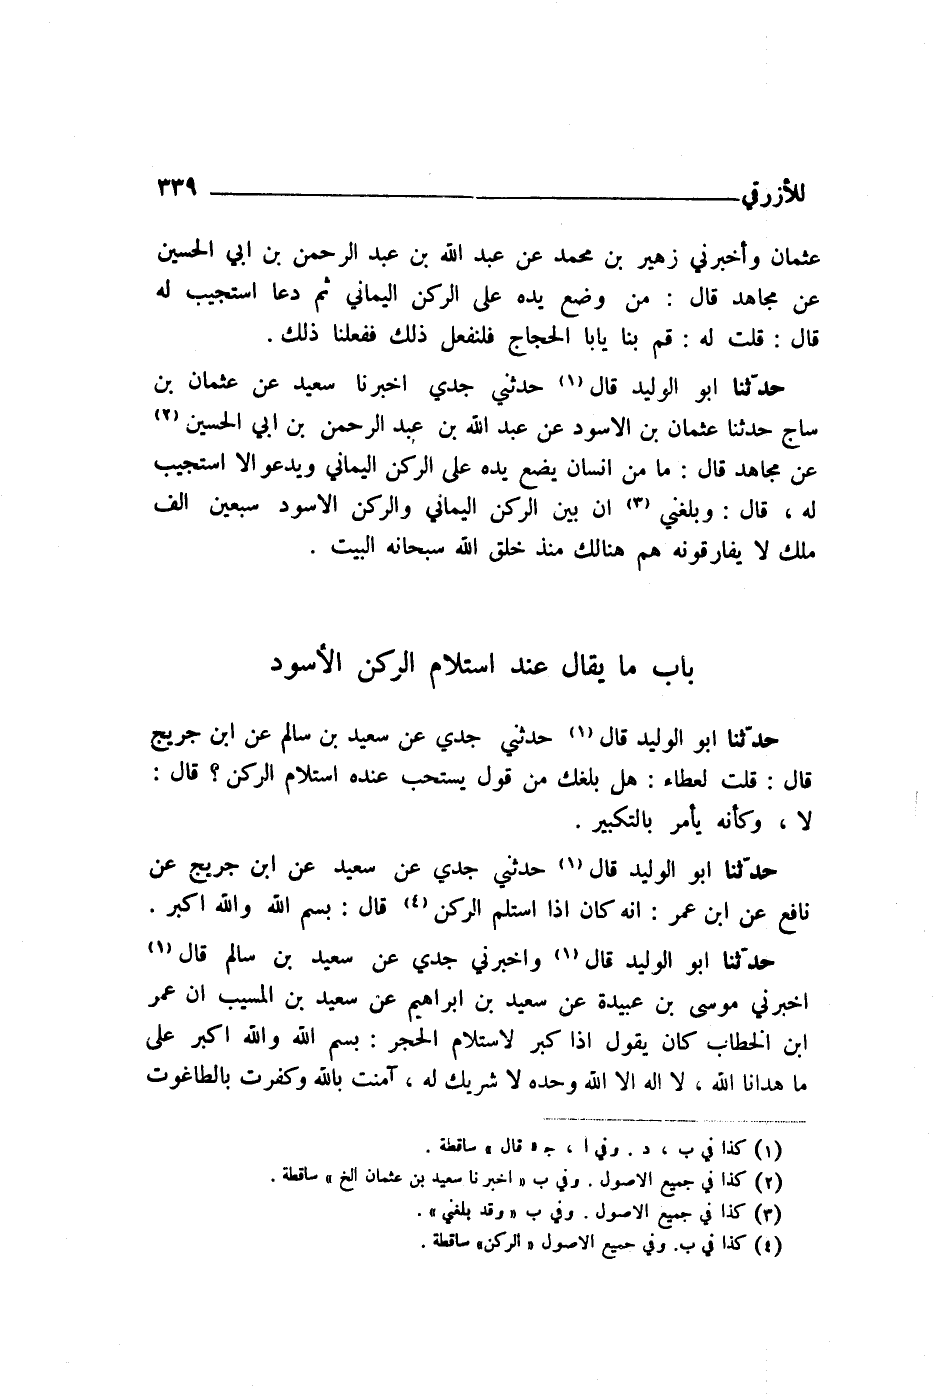 للأزرقي ٣٣٩
عثمان وأخبرني زهير بن محمد عن عبد الله بن عبد الرحمن بن ابي الحسين
عن مجاهد قال : من وضع يده على الركن اليماني ثم دعا استجيب له
قال : قلت له : قم بنا يابا الحجاج فلنفعل ذلك ففعلنا ذلك .
حدّثنا ابو الوليد قال (١) حدثني جدي اخبرنا سعيد عن عثمان بن
ساج حدثنا عثمان بن الاسود عن عبد الله بن عبد الرحمن بن ابي الحسين (٢)
عن مجاهد قال : ما من انسان يضع يده على الركن اليماني ويدعو الا استجيب
له ، قال : وبلغني (٣) ان بين الركن اليماني والركن الاسود سبعين الف
ملك لا يفارقونه هم هنالك منذ خلق الله سبحانه البيت .
باب ما يقال عند استلام الركن الأسود
حدّثنا ابو الوليد قال (١) حدثني جدي عن سعيد بن سالم عن ابن جريج
قال : قلت لعطاء : هل بلغك من قول يستحب عنده استلام الركن ؟ قال :
لا ، وكأنه يأمر بالتكبير .
حدّثنا ابو الوليد قال (١) حدثني جدي عن سعيد عن ابن جريج عن
نافع عن ابن عمر : انه كان اذا استلم الركن (٤) قال : بسم الله والله اكبر .
حدّثنا ابو الوليد قال (١) واخبرني جدي عن سعيد بن سالم قال (١)
اخبرني موسى بن عبيدة عن سعيد بن ابراهيم عن سعيد بن المسيب ان عمر
ابن الخطاب كان يقول اذا كبر لاستلام الحجر : بسم الله والله اكبر على
ما هدانا الله ، لا اله الا الله وحده لا شريك له ، آمنت بالله وكفرت بالطاغوت
(١) كذا في ب ، د . وفي ا ، ج « قال » ساقطة .
(٢) كذا في جميع الاصول . وفي ب « اخبرنا سعيد بن عثمان الخ » ساقطة .
(٣) كذا في جميع الاصول . وفي ب « وقد بلغني » .
(٤) كذا في ب. وفي جميع الاصول « الركن» ساقطة .